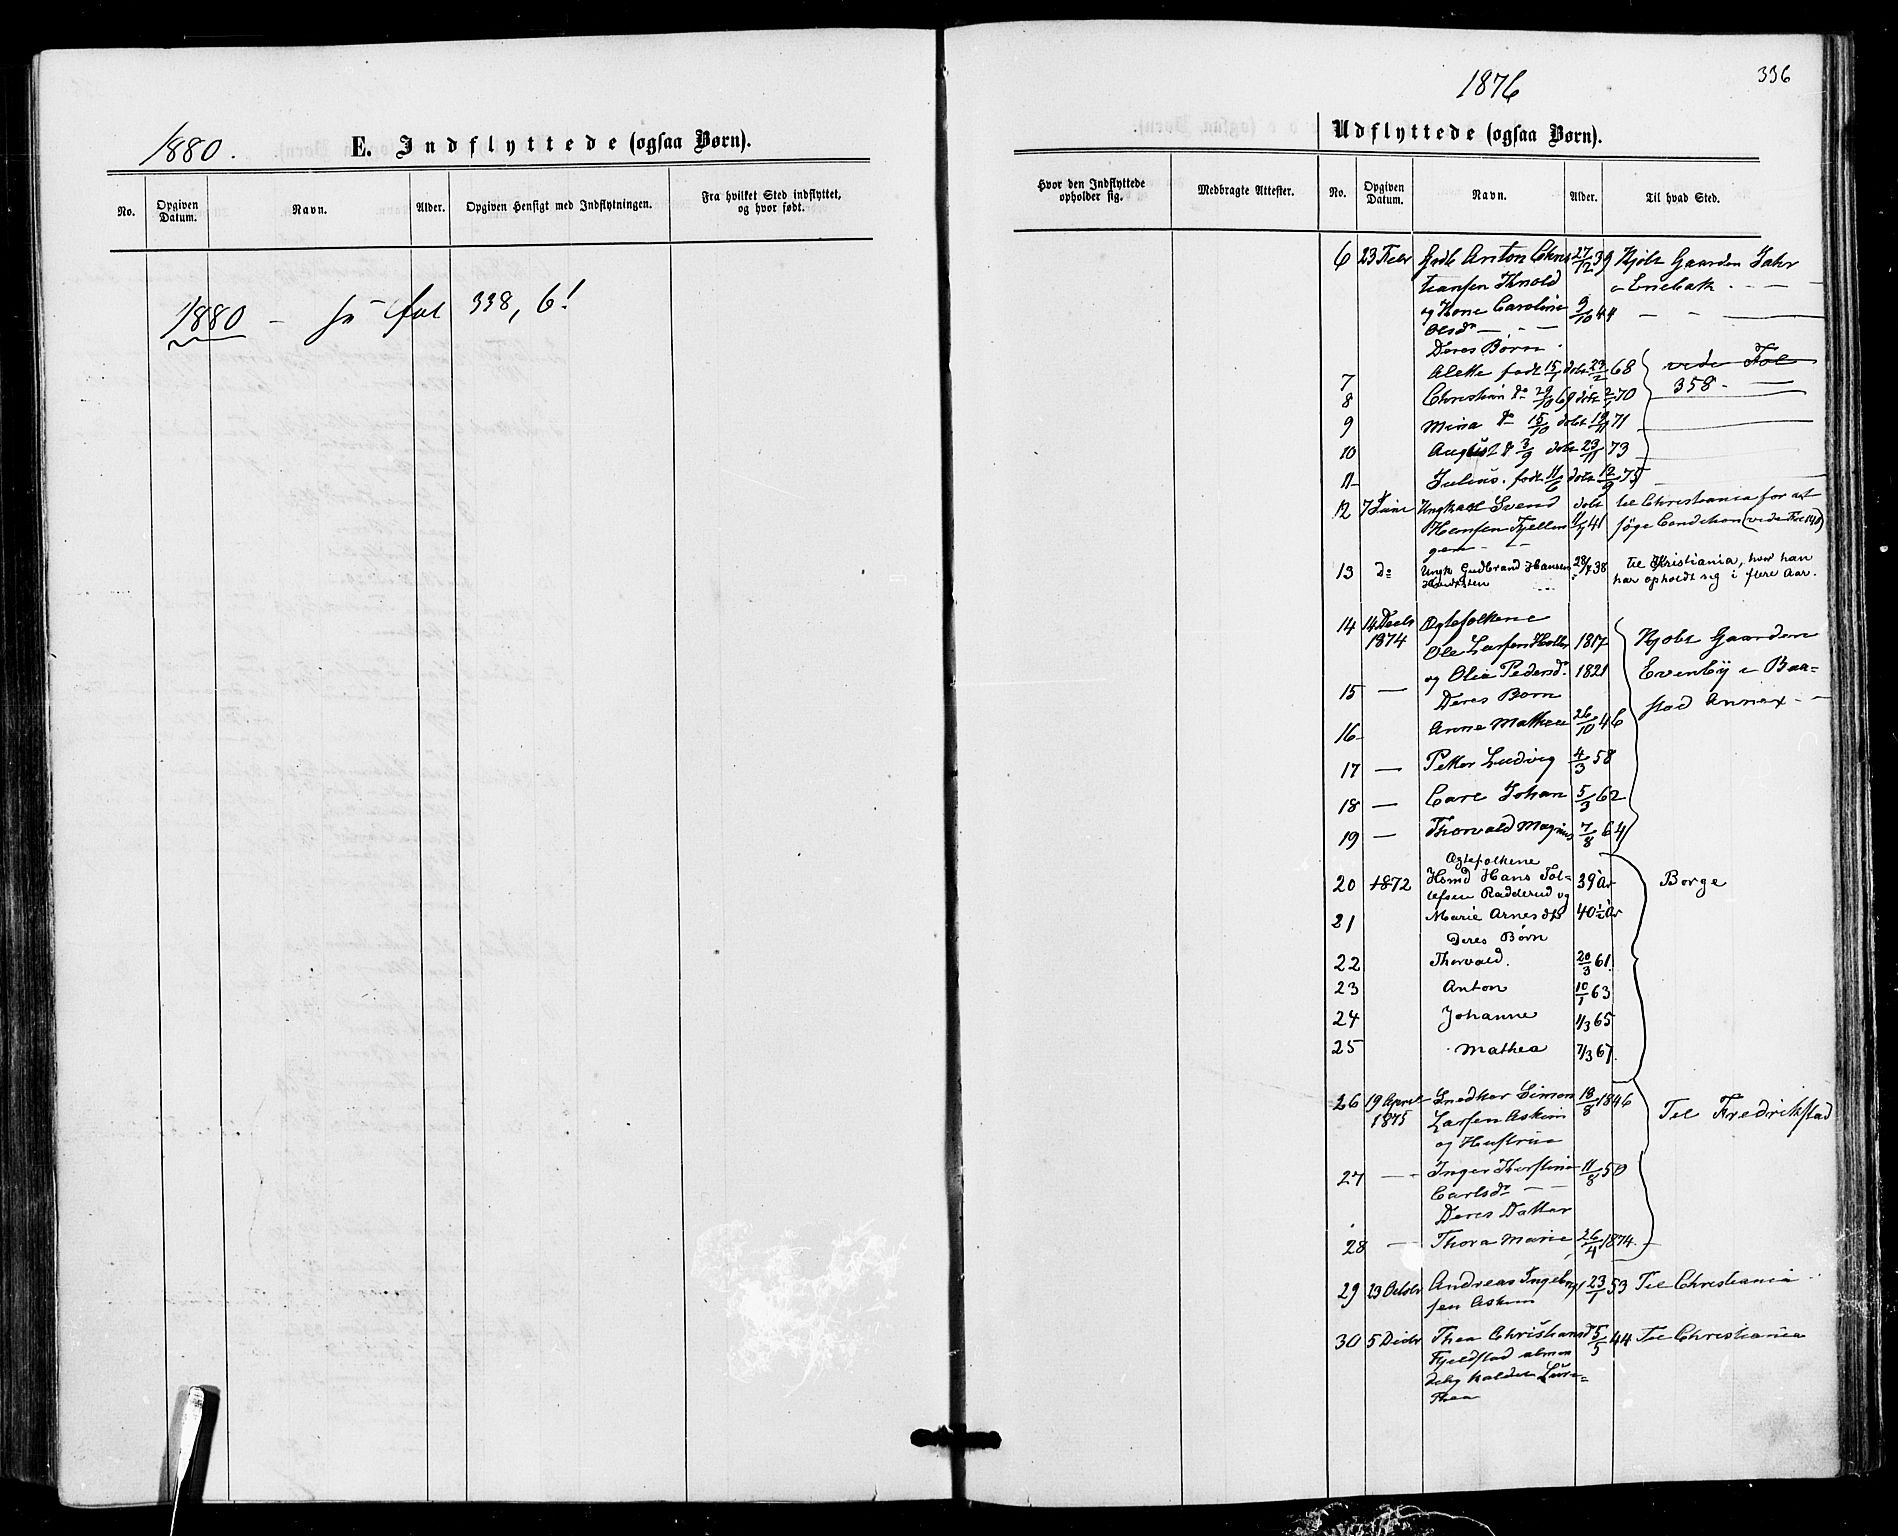 1880.
E. Indflyttede (ogsaa Børn).
No.
Opgiven Datum.
Navn.
Alder.
Opgiven Hensigt med Indflytningen.
Fra hvilket Sted indflyttet,
og hvor født.
1880 - se fol 338, 6!
336
1876
Udflyttede (ogsaa Børn).
Hvor den Indflyttede
opholder sig.
Medbragte Attester.
No.
Opgiven Datum.
Navn.
Alder.
Til hvad Sted.
6 23 Febr Anton Chris 27/12 39 Kjøbt Gaarden
tiansen
og Kone Caroline 9/10 44
Olsdr
Deres Børn
7 Alette født 15/1 døbt 23/2 68 vide Fol
8 Christian do 29/10 69 døbt 2/1 70 358
9 Mina do 15/10 døbt 19/11 71
10 August f 3/9 døbt 23/11 73
11 Julius. født 11/6 døbt 12/9 75
12 7 Juni Ungkarl Svend døbt til Christiania for at
Hansen Fjellen 11/7 41 søge Condition (vide Fol 148)
gen
13 do Ungk Gudbrand Hansen 28/7 38 til Kristiania, hvor han
har opholdt sig i flere Aar.
14 14 Decbr Ægtefolkene
1874 Ole Larsen Holter 1817 Kjøbt Gaarden
15 — og Olia Pedersdr. 1821 Evenby i Baa-
Deres Børn stad Annex
16 Anne Mathea 26/10 46
17 — Petter Ludvig 4/3 58
18 — Carl Johan 5/3 62
19 — Thorvald Magnus 7/8 64
Ægtefolkene
20 1872 Hsmd Hans Tol- 39 Ar Borge
lefsen Radderud og
21 Marie Arnesdtr 40½ Ar
Deres Børn
22 Thorvald. 20/3 61.
23 Anton 10/1 63
24 Johanne 1/3 65
25 Mathea 7/3 67.
26 19 April Snedker Simon 18/8 1846 Til Fredrikstad
1875 Larsen Askim
og Hustrue
27 — Inger Kerstine 11/8 50
Carlsdr
Deres Datter
28 — Thora Marie 26/4 1874
29 23 Octobr Andreas Ingebrigt 23/1 53 Til Christiania
sen Askim
30 5 Decbr Thea Christiansd 5/5 44 Til Christiania
Fjeldstad almin
delig kaldet Lovise
Thea